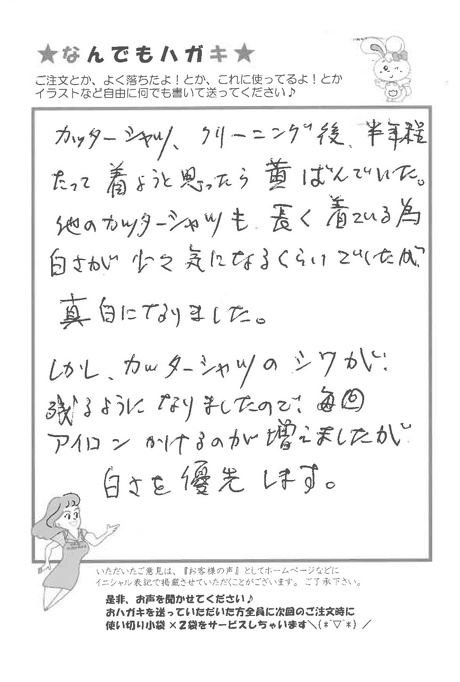 ★なんでもハガキ★
ご注文とか、よく落ちたよ！とか、これに使ってるよ！とか
イラストなど自由に何でも書いて送ってください♪
カッターシャツ、クリーニング後、半年程
たって着ようと思ったら黄ばんでいた。
他のカッターシャツも、長く着ている為
白さが少々気になるくらいでしたが、
真白になりました。
しかし、カッターシャツのシワが、
残るようになりましたので、毎回
アイロンかけるのが増えましたが
白さを優先します。
いただいたご意見は、『お客様の声』としてホームページなどに
イニシャル表記で掲載させていただくことがございます。ご了承下さい。
是非、お声を聞かせてください♪
おハガキを送っていただいた方全員に次回のご注文時に
使い切り小袋×2袋をサービスしちゃいます＼(*´▽`*)／